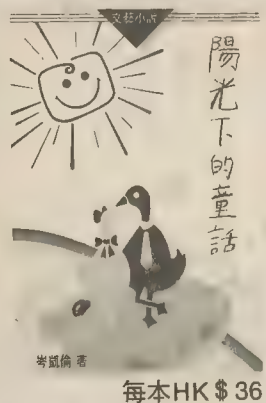 文藝小說
陽光下的童話
岑凱倫 著
每本HK$36